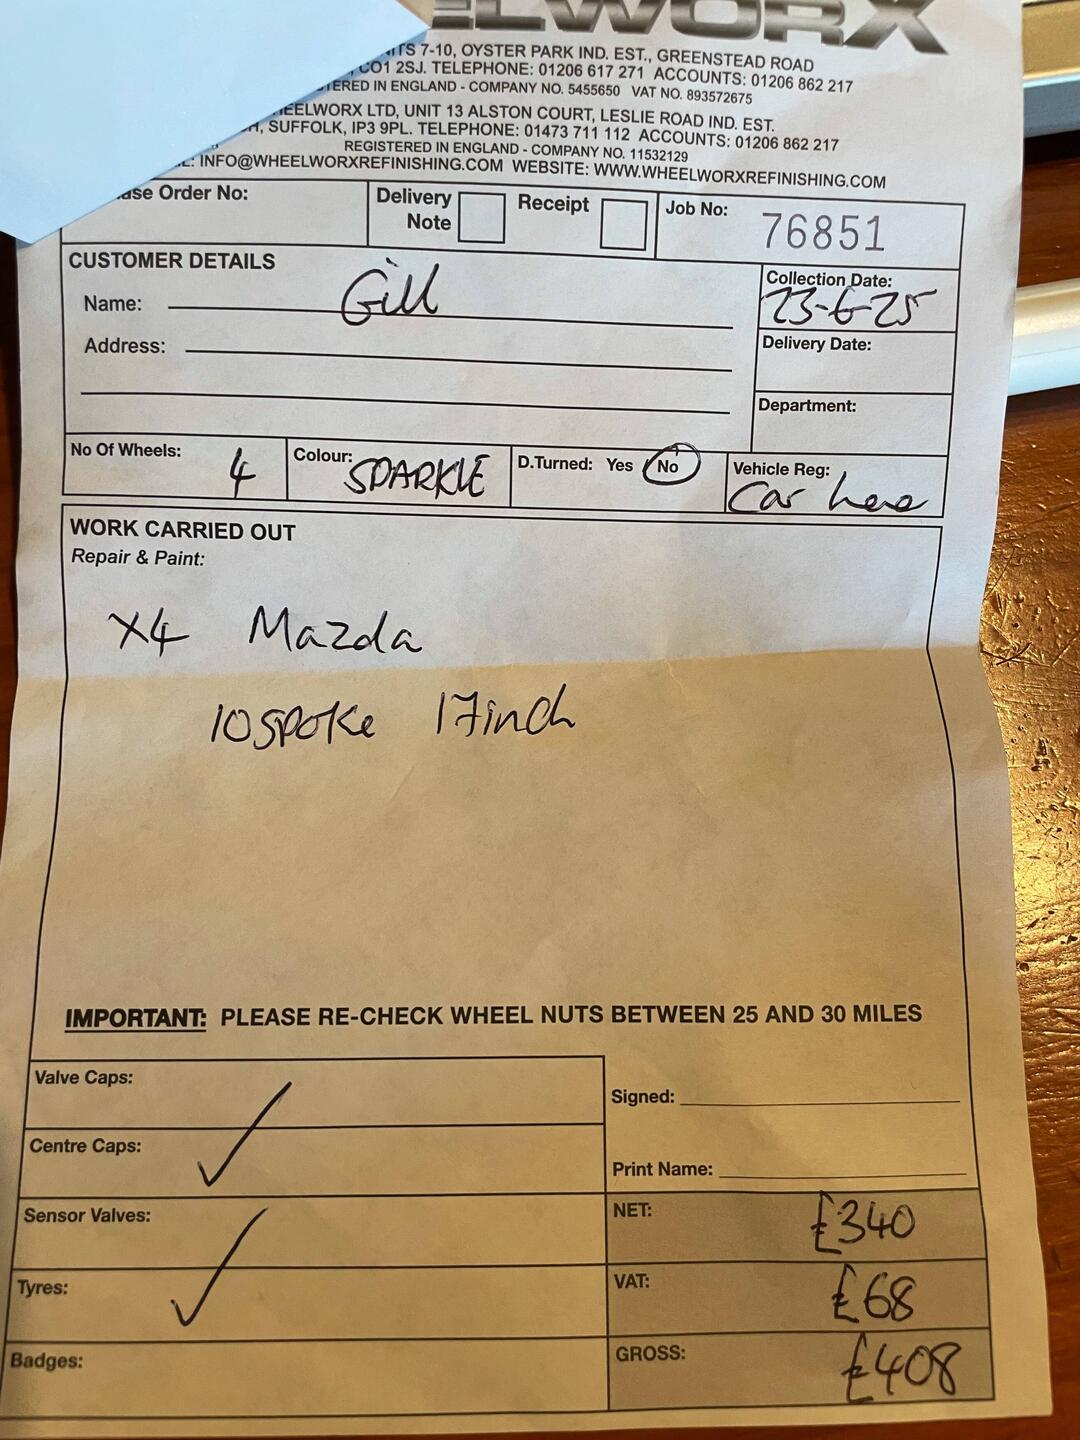 ELWORX
7-10, OYSTER PARK IND. EST., GREENSTEAD ROAD
CO1 2SJ. TELEPHONE: 01206 617 271 ACCOUNTS: 01206 862 217
IN ENGLAND - COMPANY NO. 5455650 VAT NO. 893572675
EELWORX LTD, UNIT 13 ALSTON COURT, LESLIE ROAD IND. EST.
H, SUFFOLK, IP3 9PL. TELEPHONE: 01473 711 112 ACCOUNTS: 01206 862 217
REGISTERED IN ENGLAND - COMPANY NO. 11532129
L: INFO@WHEELWORXREFINISHING.COM WEBSITE: WWW.WHEELWORXREFINISHING.COM
ase Order No:
Delivery Note
Receipt
Job No: 76851
CUSTOMER DETAILS
Name: Gill
Address:
Collection Date:
23-6-25
Delivery Date:
Department:
No Of Wheels: 4
Colour: SPARKLE
D.Turned: Yes No
Vehicle Reg:
Car here
WORK CARRIED OUT
Repair & Paint:
X4 Mazda
10 spoke 17inch
IMPORTANT: PLEASE RE-CHECK WHEEL NUTS BETWEEN 25 AND 30 MILES
Valve Caps: ✓
Centre Caps:
Sensor Valves: ✓
Tyres:
Badges:
Signed:
Print Name:
NET: £340
VAT: £68
GROSS: £408